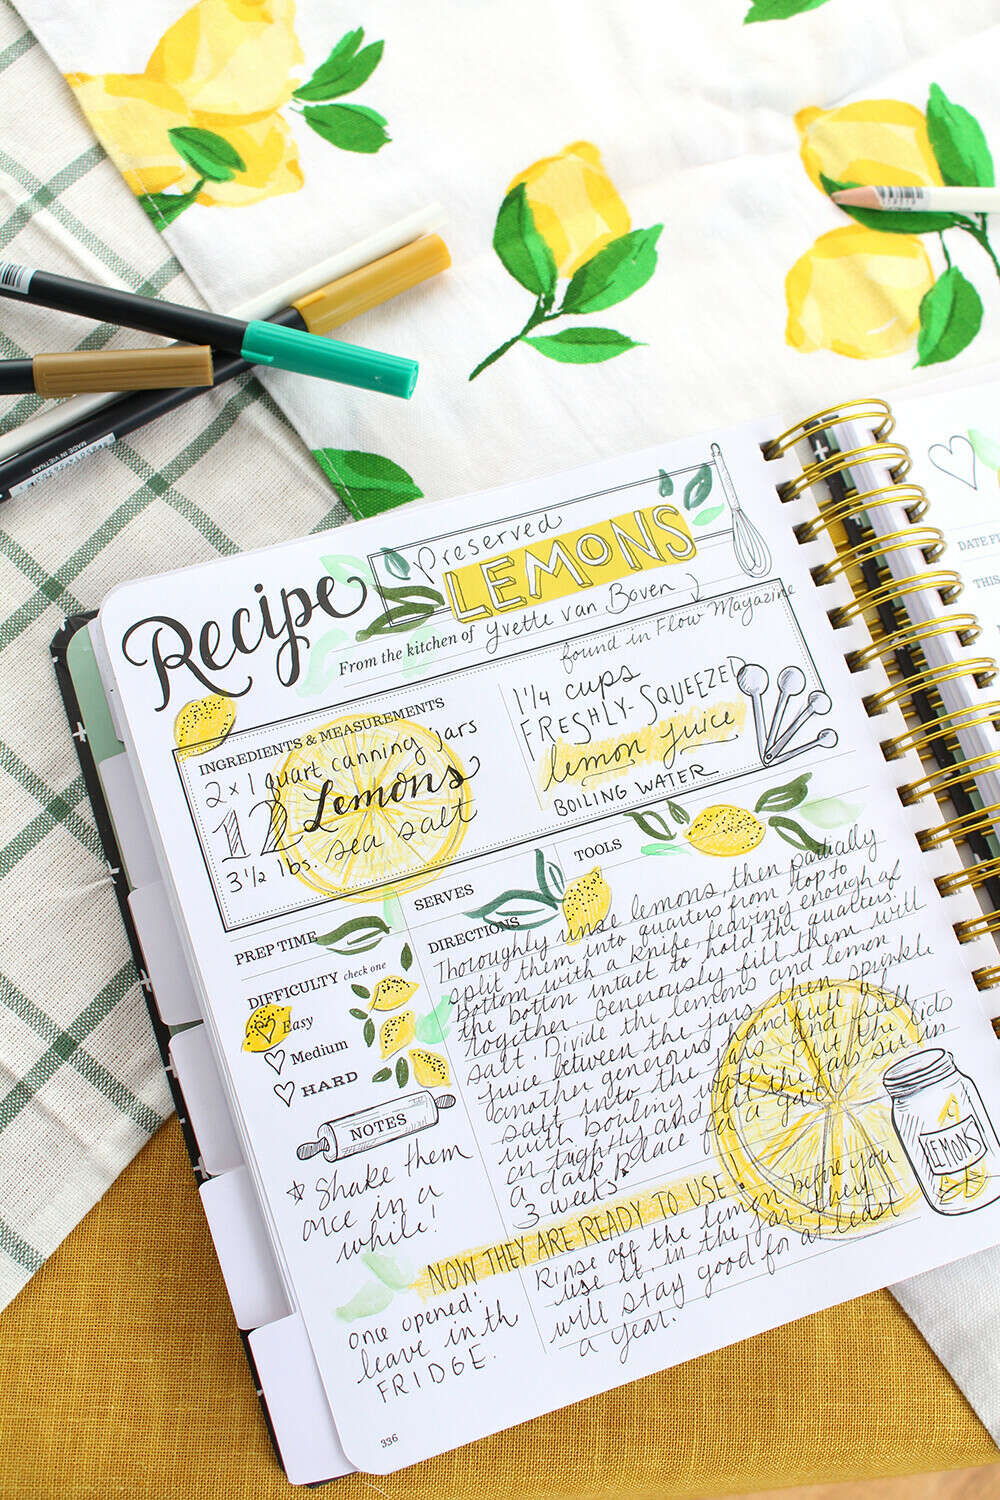 MADE IN VIETNAM
Recipe
Preserved
LEMONS
From the kitchen of Yvette van Boven
found in Flow Magazine
INGREDIENTS & MEASUREMENTS
2 x 1 quart canning jars
12 Lemons
3 1/2 lbs. sea salt
1 1/4 cups
FRESHLY-SQUEEZED
lemon juice
BOILING WATER
SERVES
TOOLS
PREP TIME
DIFFICULTY check one
Easy
Medium
HARD
NOTES
* Shake them
once in a
while!
once opened:
leave in th
FRIDGE.
DIRECTIONS
Thoroughly rinse lemons, then partially
split them into quarters from top to
bottom with a knife, leaving enough of
the bottom intact to hold the quarters
together. Generously fill them with
salt. Divide the lemons and lemon
juice between the jars, then sprinkle
another generous and full
salt into the jars and fill
with boiling water. Put the lids
on tightly and let the jars sit in
a dark place for a
3 weeks.
NOW THEY ARE READY TO USE!
Rinse off the lemon before you
use it. in the jar, they
will stay good for at least
a year.
LEMONS
336
DATE F
THIS